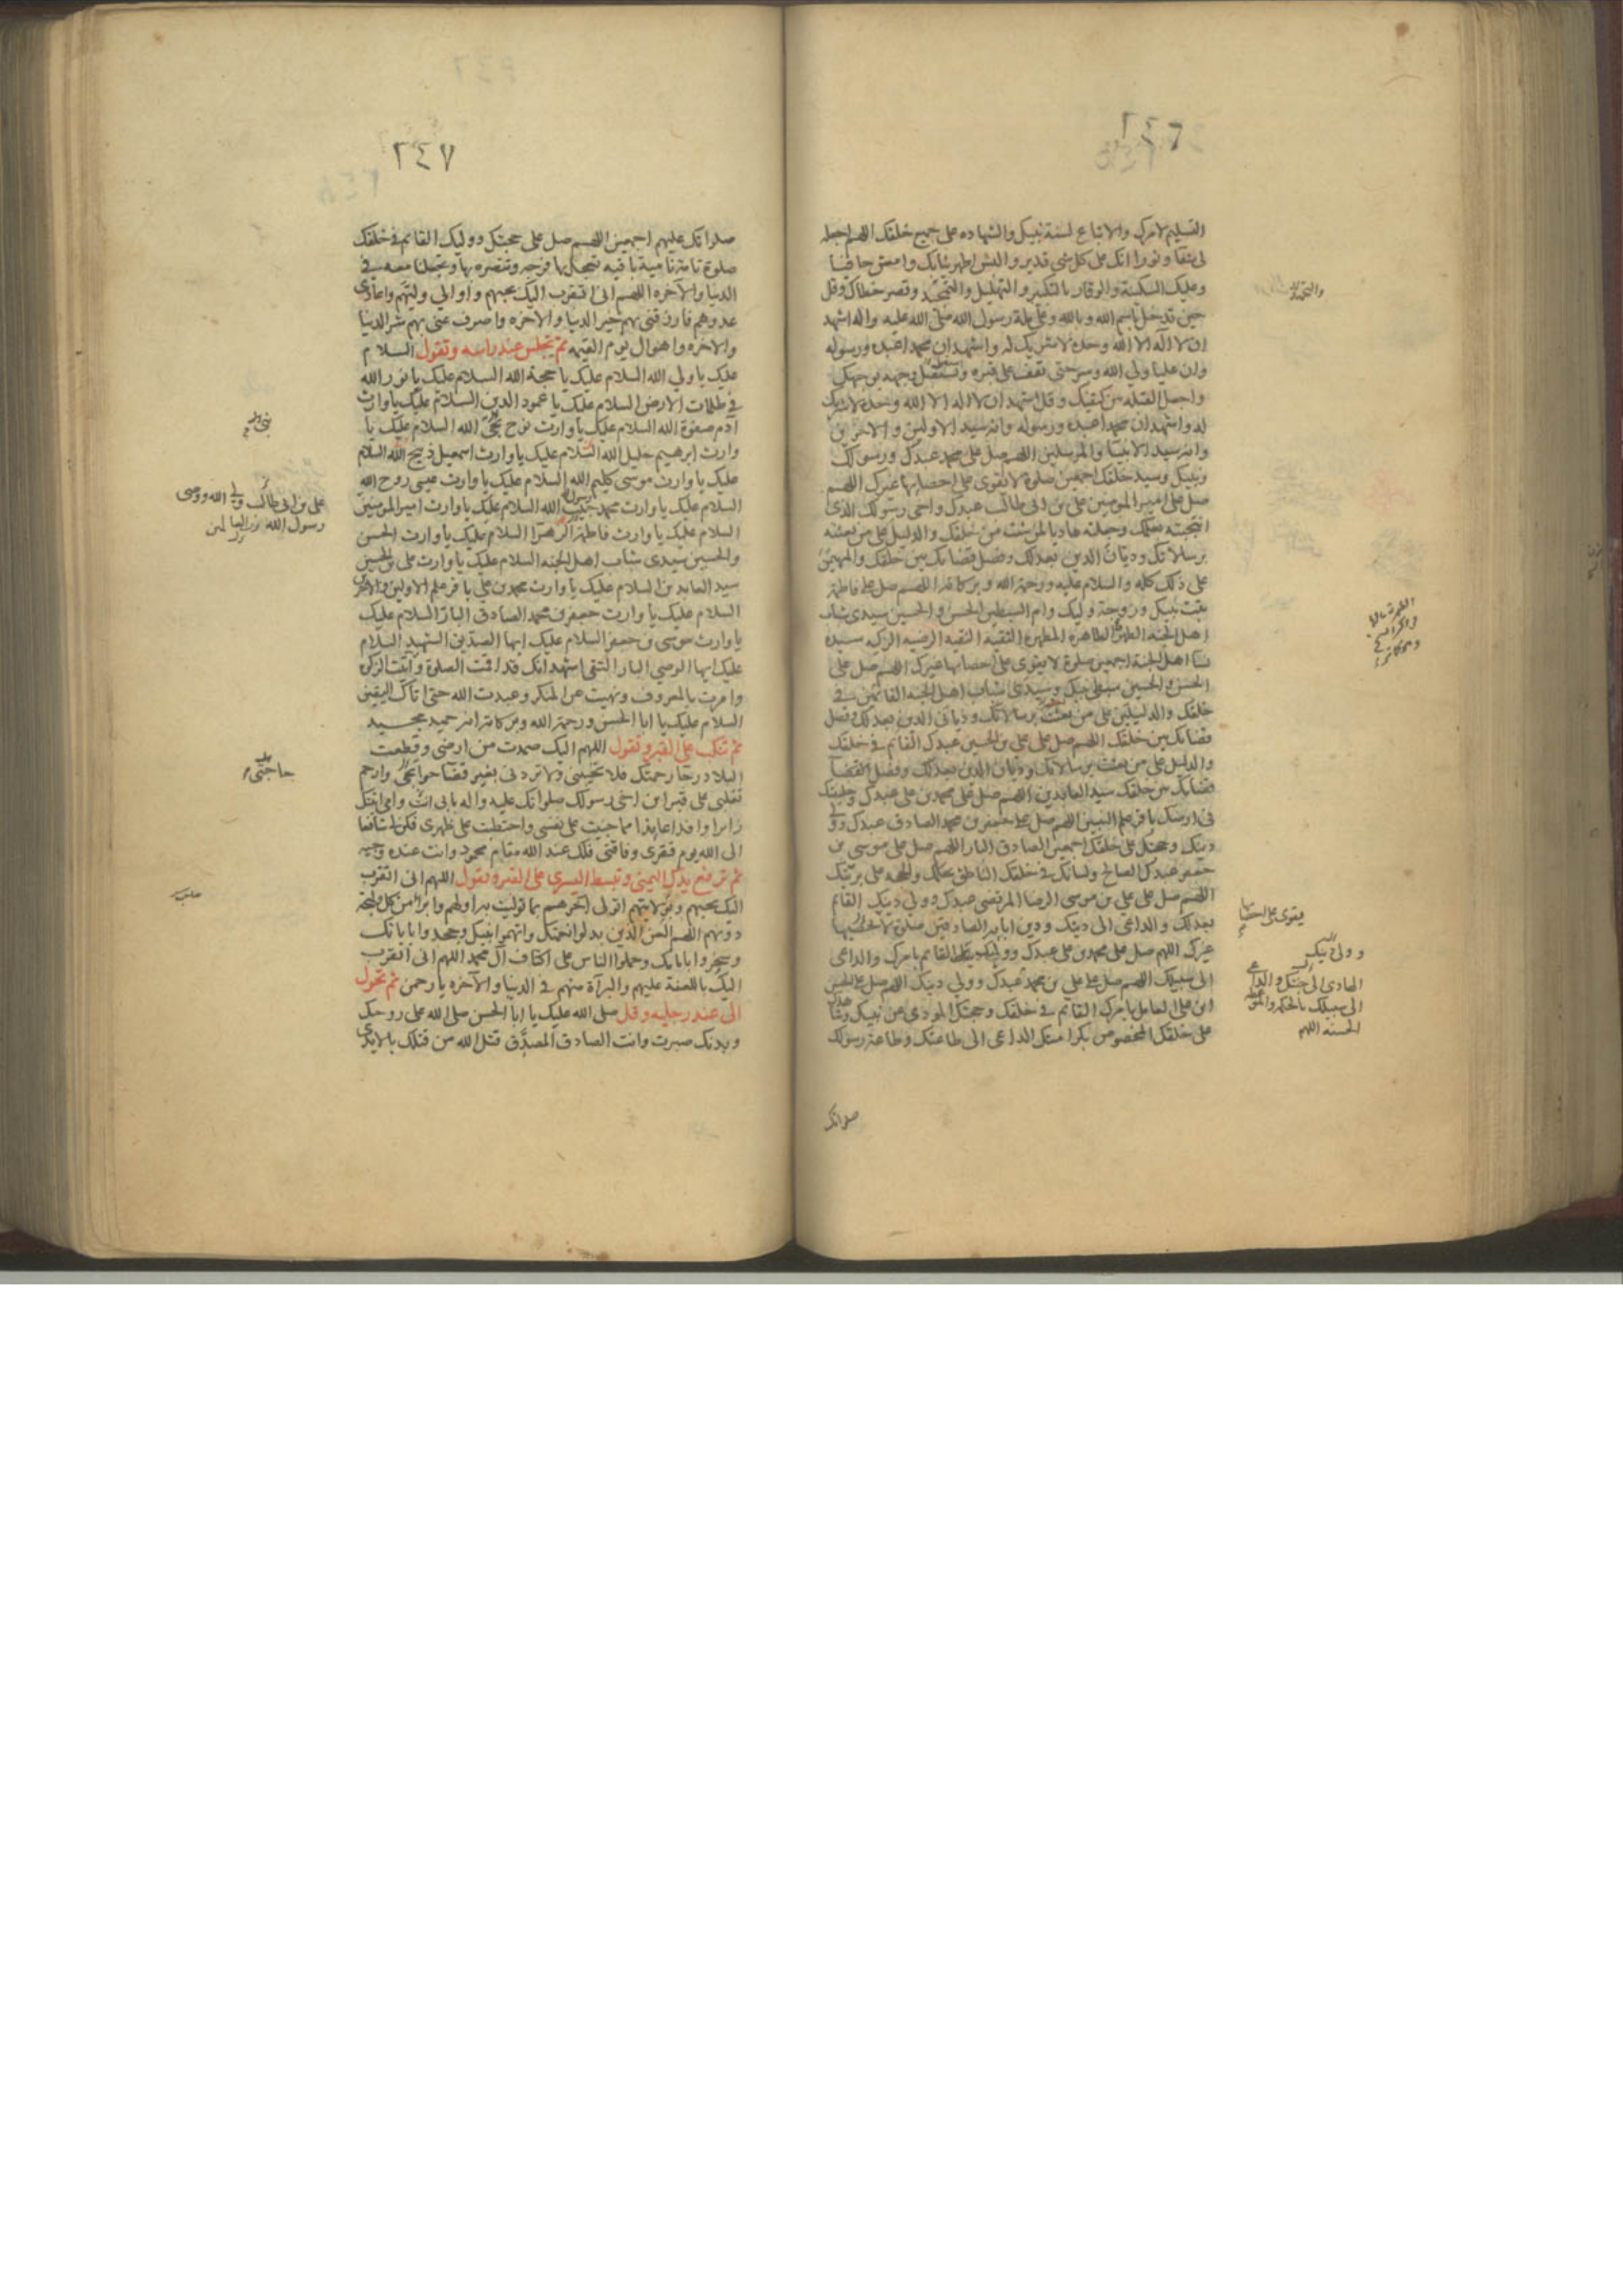 ٢٤٦
التسليم لامرك والاتباع لسنة نبيك والشهاده على جميع خلقك اللهم اجعله
لى شفآ و نورا انك على كل شى قدير و البس اطهر ثيابك وامش حافيا
وعليك السكينة والوقار بالتكبير و التهليل والتمجيد وقصر خطاك وقل
حين تدخل باسم الله و بالله و على ملة رسول الله صلى الله عليه واله اشهد
ان لا اله الا الله وحده لا شريك له واشهد ان محمدا عبده ورسوله
وان عليا ولي الله وسر حتى تقف على قبره وتستقبل وجهه بوجهك
واجعل القبله بين كتفيك و قل اشهد ان لا اله الا الله وحده لا شريك
له واشهد ان محمدا عبده ورسوله وانه سيد الاولين و الاخرين
وانه سيد الانبيآ والمرسلين اللهم صل على محمد عبدك ورسولك
ونبيك وسيد خلقك اجمعين صلوة لا يقوى على احصايها غيرك اللهم
صل على امير المومنين على بن ابى طالب عبدك واخى رسولك الذى
انتجبته بعلمك وجعلته هاديا لمن شئت من خلقك والدليل على من بعثته
برسالاتك وديان الدين بعدلك وفصل قضايك بين خلقك والمهيمن
على ذلك كله والسلام عليه ورحمة الله و بركاته اللهم صل على فاطمة
بنت نبيك و زوجة وليك وام السبطين الحسن و الحسين سيدى شباب
اهل الجنه الطهرة الطاهره المطهرة التقيه النقيه الرضيه الزكيه سيدة
نسآ اهل الجنة اجمعين صلوة لا يقوى على احصايها غيرك اللهم صل على
الحسن والحسين سبطى نبيك وسيدى شباب اهل الجنه القائمين فى
خلقك والدليلين على من بعثت برسالاتك وديانى الدين بعدلك وفصل
قضائك بين خلقك اللهم صل على على بن الحسين عبدك القايم فى خلقك
والدليل على من بعثت برسالاتك وديان الدين بعدلك وفصل القضآ
قضايك بين خلقك سيد العابدين اللهم صل على محمد بن على عبدك وخليفتك
فى ارضك باقر علم النبيين اللهم صل على جعفر بن محمد الصادق عبدك وولى
دينك وحجتك على خلقك اجمعين الصادق البار اللهم صل على موسى بن
جعفر عبدك الصالح ولسانك فى خلقك الناطق بحكمك والحجه على بريتك
اللهم صل على على بن موسى الرضا المرتضى عبدك و ولي دينك القايم
بعدلك والداعى الى دينك و دين ابايه الصادقين صلوة لا
غيرك اللهم صل على محمد بن على عبدك و وليك القايم بامرك والداعى
الى سبيلك اللهم صل على على بن محمد عبدك وولي دينك اللهم صل على الحسن
ابن على العامل بامرك القايم فى خلقك وحجتك المودى عن نبيك وشاهدك
على خلقك المخصوص بكرامتك الداعى الى طاعتك وطاعة رسولك
صلواتك
يقوى على احصايها
و ولى دينك
الى سبيلك بالحكمه والموعظه
الحسنه اللهم
٢٤٧
صلواتك عليهم اجمعين اللهم صل على حجتك و وليك القايم فى خلقك
صلوة تامة نامية باقيه تعجل بها فرجه وتنصره بها وتجعلنا معه فى
الدنيا والآخره اللهم انى اتقرب اليك بحبهم واوالي وليهم واعادى
عدوهم فارزقنى بهم خير الدنيا والاخره واصرف عنى بهم شر الدنيا
والاخره واهوال يوم القيمه ثم تجلس عند راسه وتقول السلام
عليك يا ولي الله السلام عليك يا حجة الله السلام عليك يا نور الله
فى ظلمات الارض السلام عليك يا عمود الدين السلام عليك يا وارث
آدم صفوة الله السلام عليك يا وارث نوح نجى الله السلام عليك يا
وارث ابرهيم خليل الله السلام عليك يا وارث اسمعيل ذبيح الله السلام
عليك يا وارث موسى كليم الله السلام عليك يا وارث عيسى روح الله
السلام عليك يا وارث محمد حبيب الله السلام عليك يا وارث امير المومنين
السلام عليك يا وارث فاطمة الزهرآ السلام عليك يا وارث الحسن
والحسين سيدى شباب اهل الجنه السلام عليك يا وارث على بن الحسين
سيد العابدين السلام عليك يا وارث محمد بن على باقر علم الاولين والاخرين
السلام عليك يا وارث جعفر بن محمد الصادق البار السلام عليك
يا وارث موسى بن جعفر السلام عليك ايها الصديق الشهيد السلام
عليك ايها الوصي البار التقى اشهد انك قد اقمت الصلوة وآتيت الزكوة
وامرت بالمعروف ونهيت عن المنكر وعبدت الله حتى اتاك اليقين
السلام عليك يا ابا الحسن ورحمة الله وبركاته انه حميد مجيد
ثم تنكب على القبر وتقول اللهم اليك صمدت من ارضى وقطعت
البلاد رجآ رحمتك فلا تخيبنى ولا تردنى بغير قضآ حوايجى وارحم
تقلبى على قبر ابن اخى رسولك صلواتك عليه واله بابى انت وامى اتيتك
زايرا وافدا عايذا مما جنيت على نفسى واحتطبت على ظهرى فكن لى شافعا
الى الله يوم فقرى وفاقتى فلك عند الله مقام محمود وانت عنده وجيه
ثم ترفع يدك اليمنى وتبسط اليسرى على القبر وتقول اللهم انى اتقرب
اليك بحبهم وبولايتهم اتولى اخرهم بما توليت به اولهم وابرا من كل وليجة
دونهم اللهم العن الذين بدلوا نعمتك واتهموا نبيك وجحدوا باياتك
وسخروا بامامك وحملوا الناس على اكتاف آل محمد اللهم انى اتقرب
اليك باللعنة عليهم والبرآة منهم فى الدنيا والآخره يا رحمن ثم تحول
الى عند رجليه وقل صلى الله عليك يا ابا الحسن صلى الله على روحك
وبدنك صبرت وانت الصادق المصدق قتل الله من قتلك بالايدى
على بن ابى طالب ولي الله ووصى
رسول الله رب العالمين
حاجتى